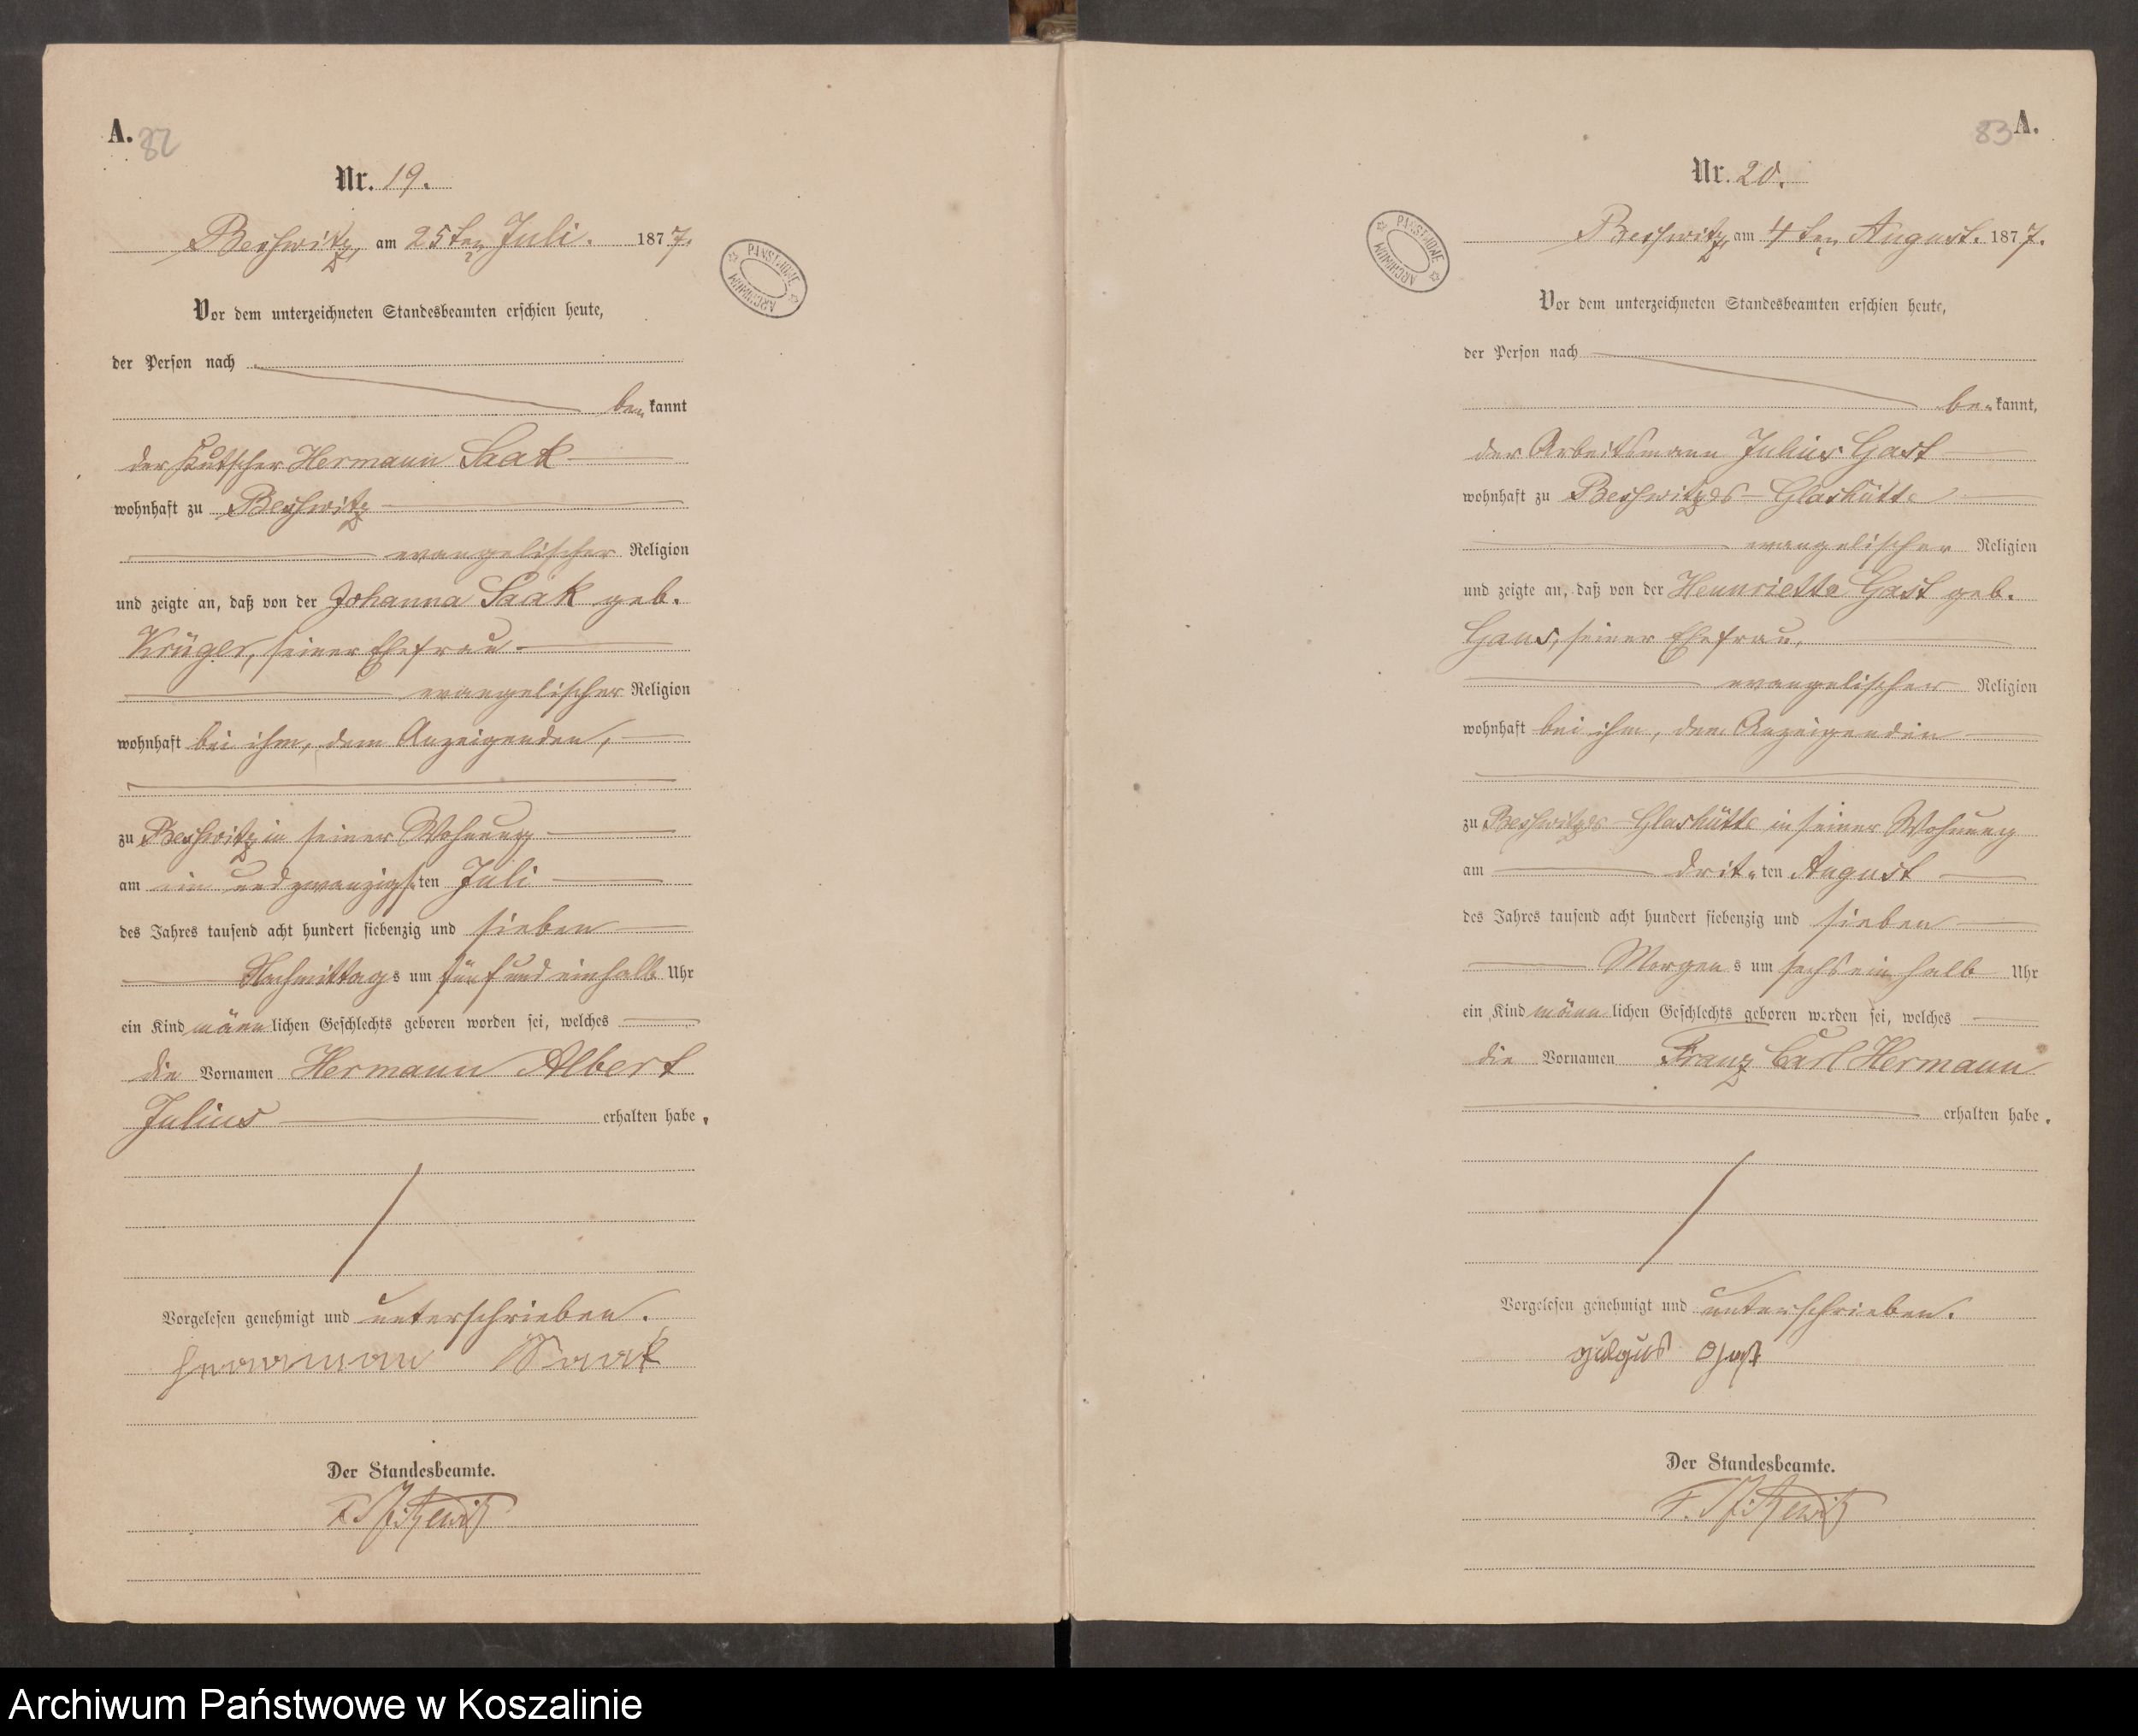 A. 82
Nr. 19.
Beßwitz, am 25ten Juli. 1877.
PAŃSTWOWE ARCHIWUM
Vor dem unterzeichneten Standesbeamten erschien heute,
der Person nach
bekannt
der Kutscher Hermann Saak
wohnhaft zu Beßwitz
evangelischer Religion
und zeigte an, daß von der Johanna Saak geb.
Krüger, seiner Ehefrau
evangelischer Religion
wohnhaft bei ihm, dem Anzeigenden,
zu Beßwitz in seiner Wohnung
am ein und zwanzigsten Juli
des Jahres tausend acht hundert siebenzig und sieben
Nachmittags um fünf und einhalb Uhr
ein Kind männlichen Geschlechts geboren worden sei, welches
die Vornamen Hermann Albert
Julius erhalten habe.
Vorgelesen genehmigt und unterschrieben.
Herrmann Saak
Der Standesbeamte.
83 A.
Nr. 20.
Beßwitz, am 4ten August. 1877.
PAŃSTWOWE ARCHIWUM
Vor dem unterzeichneten Standesbeamten erschien heute,
der Person nach
bekannt,
der Arbeitsmann Julius Gast
wohnhaft zu Beßwitzer-Glashütte
evangelischer Religion
und zeigte an, daß von der Hennriette Gast geb.
Gans, seiner Ehefrau,
evangelischer Religion
wohnhaft bei ihm, dem Anzeigenden
zu Beßwitzer-Glashütte in seiner Wohnung
am dritten August
des Jahres tausend acht hundert siebenzig und sieben
Morgens um sechs ein halb Uhr
ein Kind männlichen Geschlechts geboren worden sei, welches
die Vornamen Franz Carl Hermann
erhalten habe.
Vorgelesen genehmigt und unterschrieben.
Gast
Der Standesbeamte.
Archiwum Państwowe w Koszalinie